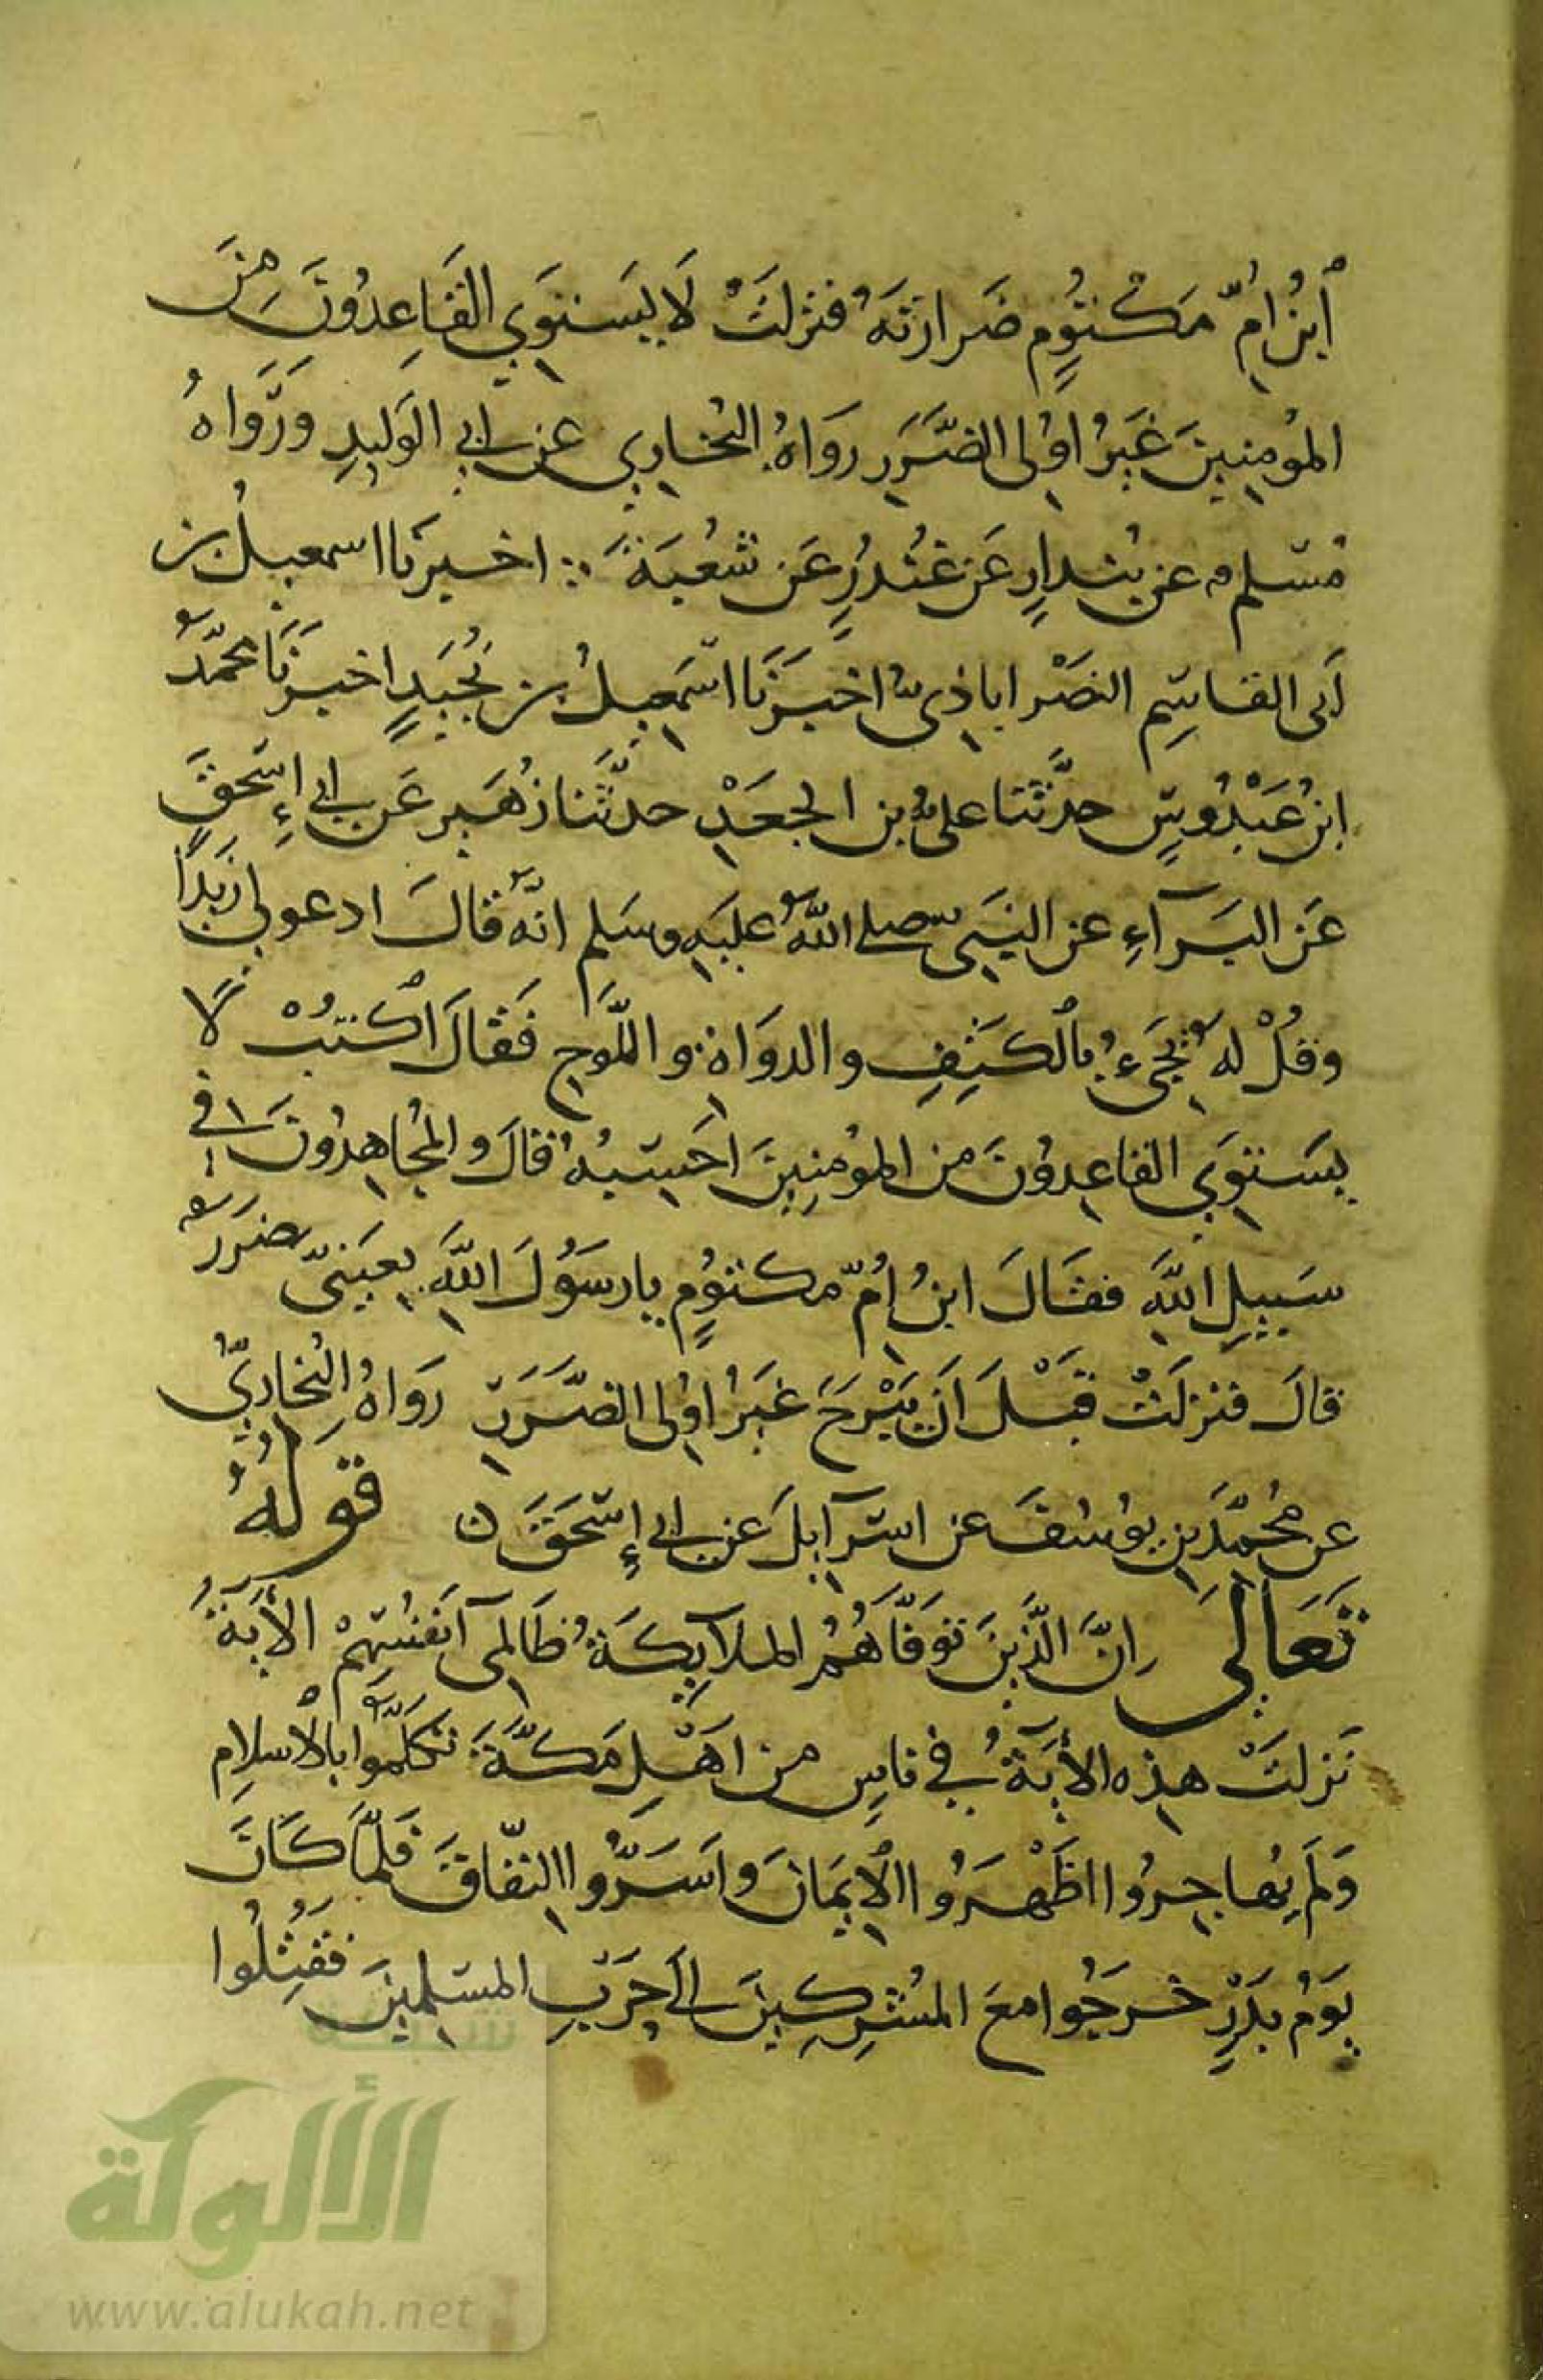 ابْنُ امِّ مَكْتُومٍ ضَرارَتَهُ فنَزلَتْ لَا يَسْتَوِي القَاعِدُونَ مِنَ
المُومِنِينَ غَيْرُ اوُلى الضَّرَرِ رَوَاهُ البُخارِي عن ابي الوَليدِ وَرَوَاهُ
مُسْلم عن بُندارٍ عَن غُنْدُرٍ عَن شُعْبَةَ ∴ اخبرَنا اسمعيلُ بن
أبى القاسِمِ النصْراباذىُّ اخبَرَنَا اسْمَعِيلُ بن نُجَيدٍ اخبرَنَا محمّدُ
ابنُ عَبْدُوسٍ حدَّثنا علىُّ بن الجعَدْ حدثَّنا زُهَير عَن ابي إسْحقَ
عَن البَرآءِ عن النبَىِّ صلى اللهُ عليَهِ وسَلم انّهُ قالَ ادعو لي زيَدًا
وقلُ لهُ يجَىءُ بالكتِفِ والدوَاةِ واللَّوحِ فَقالَ اكتُبْ لا
يسَتوِي القاعِدوُنَ من الموُمِنِينَ احَسْبُهُ قالَ والمُجاهِدُونَ في
سَبيلِ اللهِ فقَالَ ابنُ اُمِّ مكتوُمٍ يا رسَوُلَ اللهِ بِعيَنىّ ضَرَرٌ
قالَ فنزلَتْ قبْلَ اَن يَبْرحَ غيَرُ اوُلى الضَّرَرِ رَوَاهُ البُخارِيُّ
عن مُحمّدَ بنِ يوُسُفَ عن اسرآيلَ عن ابي إسْحَقَ ن قَولهُ
تَعَالَى اِنَّ الَّذِينَ تَوَفَّاهُمُ الملآيِكَةُ ظَالِمى آنفُسِهِمْ الأيَةُ
نَزلَتْ هذِه الأيَةُ في ناسٍ من اهَلِ مَكَّةَ تكَلَّمُوا بالاسلامِ
وَلَم يهُاجِرُوا اظَهْرَوُا الايمَانَ واسَرُّوا النِّفاقَ فَلمَّا كَانَ
يوَمُ بدَرٍ خَرجُوا معَ المشُرِكِينَ الَى حَربِ المسلِمينَ فَقُتِلُوا
شبكة
الألوكة
www.alukah.net